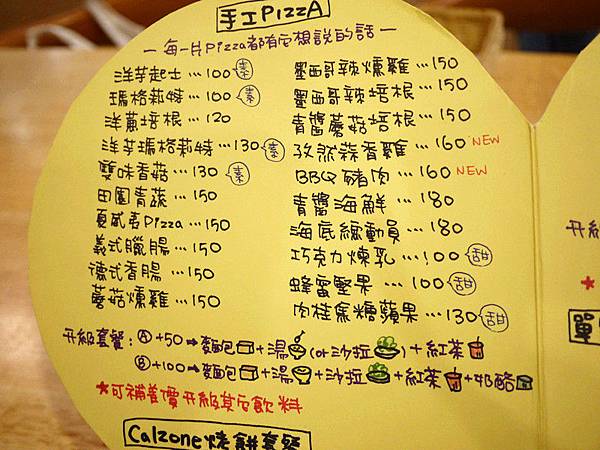 手工PIZZA
— 每一片Pizza都有它想說的話 —
洋芋起士…100 素
瑪格莉特…100 素
洋蔥培根…120
洋芋瑪格莉特…130 素
雙味香菇…130 素
田園青蔬…150
夏威夷Pizza…150
義式臘腸…150
德式香腸…150
蘑菇燻雞…150
墨西哥辣燻雞…150
墨西哥辣培根…150
青醬蘑菇培根…150
孜然蒜香雞…160 NEW
BBQ豬肉…160 NEW
青醬海鮮…180
海底總動員…180
巧克力煉乳…100 甜
蜂蜜堅果…100 甜
肉桂焦糖蘋果…130 甜
升級套餐：Ⓐ+50→麵包+湯(or沙拉)+紅茶
Ⓑ+100→麵包+湯+沙拉+紅茶+奶酪
*可補差價升級其它飲料
Calzone烤餅套餐
升級
*
單